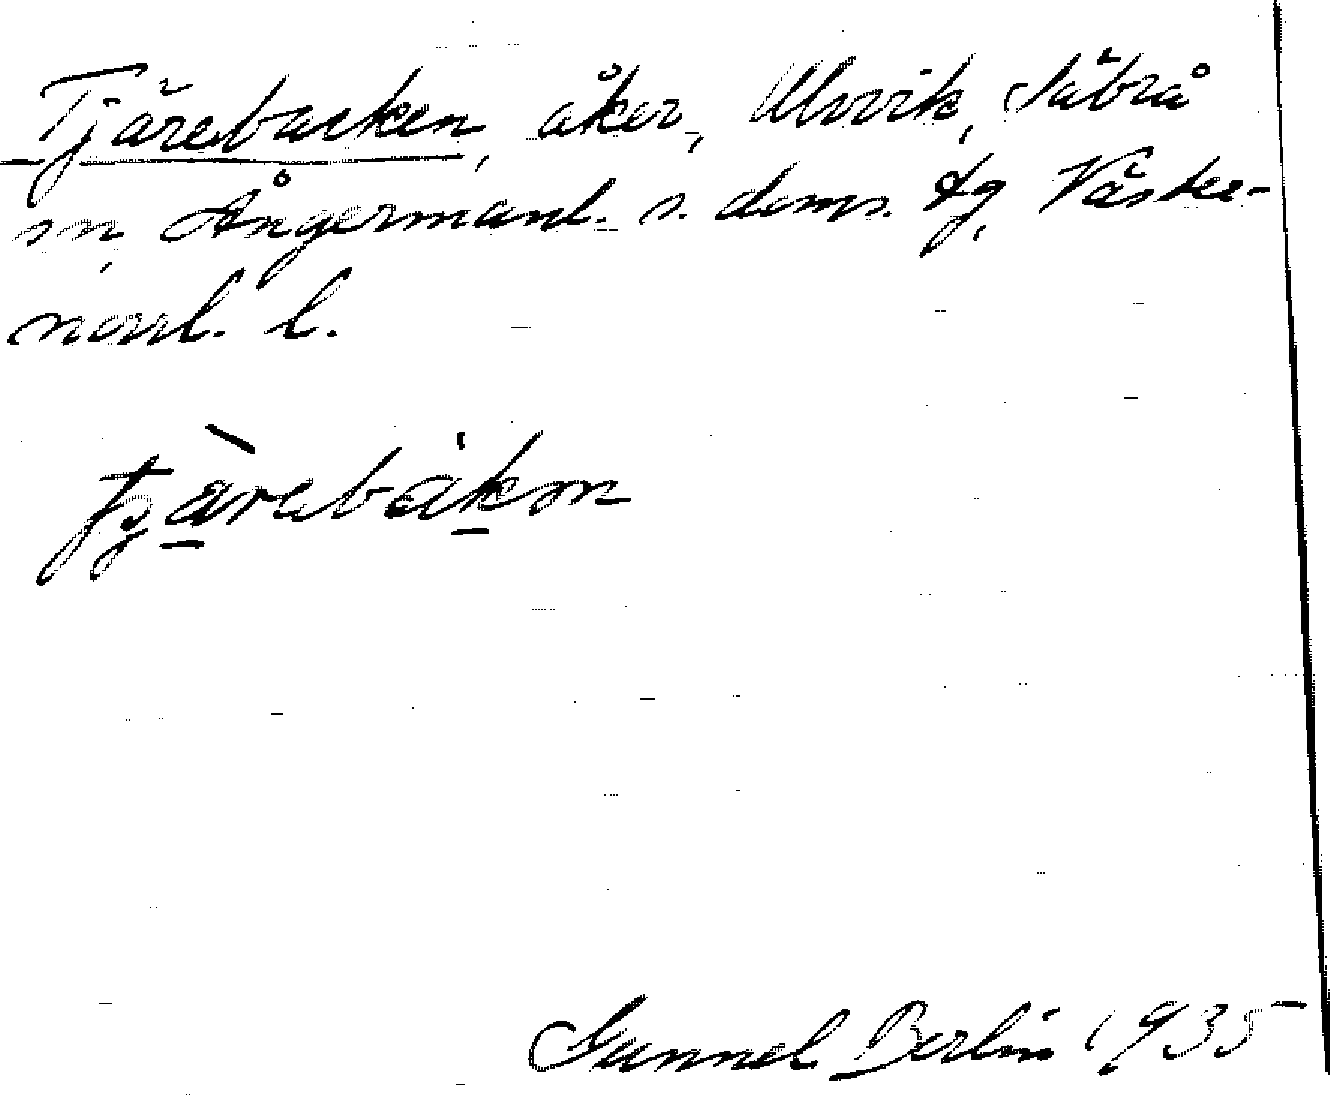 Tjärebacken, åker, Ulvvik, Säbrå
sn, Ångermanl. s. doms. tg, Väster-
norrl. l.
tjàrebákεn
Gunnel Berlin 1935